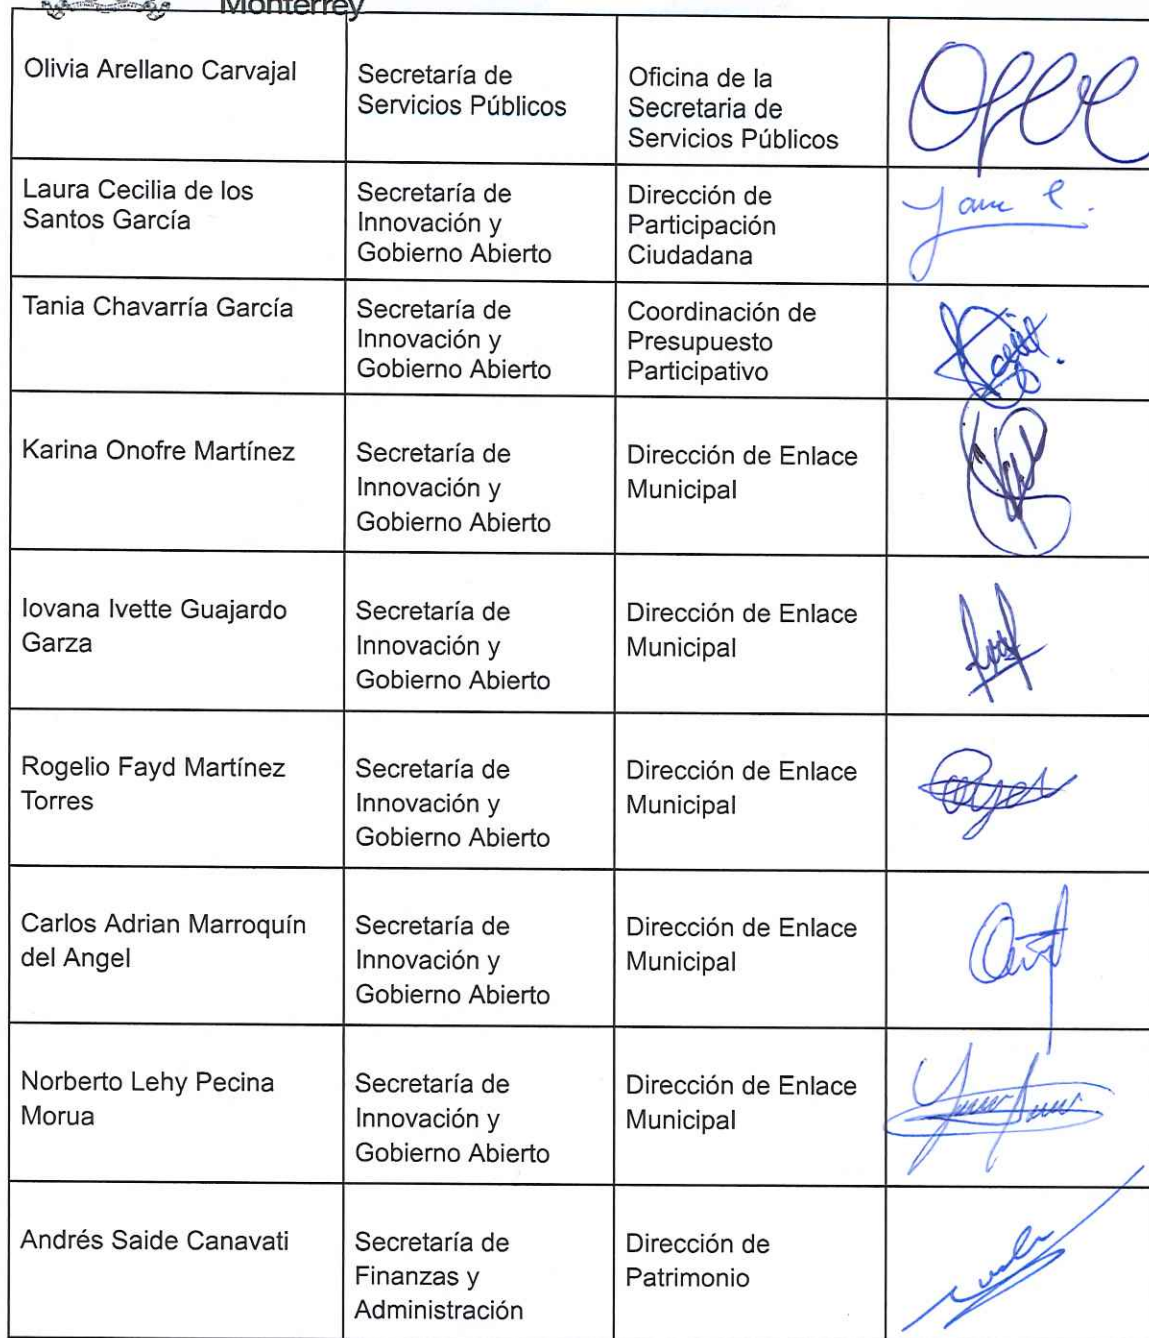 Monterrey
Olivia Arellano Carvajal
Secretaría de
Servicios Públicos
Oficina de la
Secretaria de
Servicios Públicos
Laura Cecilia de los
Santos García
Secretaría de
Innovación y
Gobierno Abierto
Dirección de
Participación
Ciudadana
Tania Chavarría García
Secretaría de
Innovación y
Gobierno Abierto
Coordinación de
Presupuesto
Participativo
Karina Onofre Martínez
Secretaría de
Innovación y
Gobierno Abierto
Dirección de Enlace
Municipal
Iovana Ivette Guajardo
Garza
Secretaría de
Innovación y
Gobierno Abierto
Dirección de Enlace
Municipal
Rogelio Fayd Martínez
Torres
Secretaría de
Innovación y
Gobierno Abierto
Dirección de Enlace
Municipal
Carlos Adrian Marroquín
del Angel
Secretaría de
Innovación y
Gobierno Abierto
Dirección de Enlace
Municipal
Norberto Lehy Pecina
Morua
Secretaría de
Innovación y
Gobierno Abierto
Dirección de Enlace
Municipal
Andrés Saide Canavati
Secretaría de
Finanzas y
Administración
Dirección de
Patrimonio